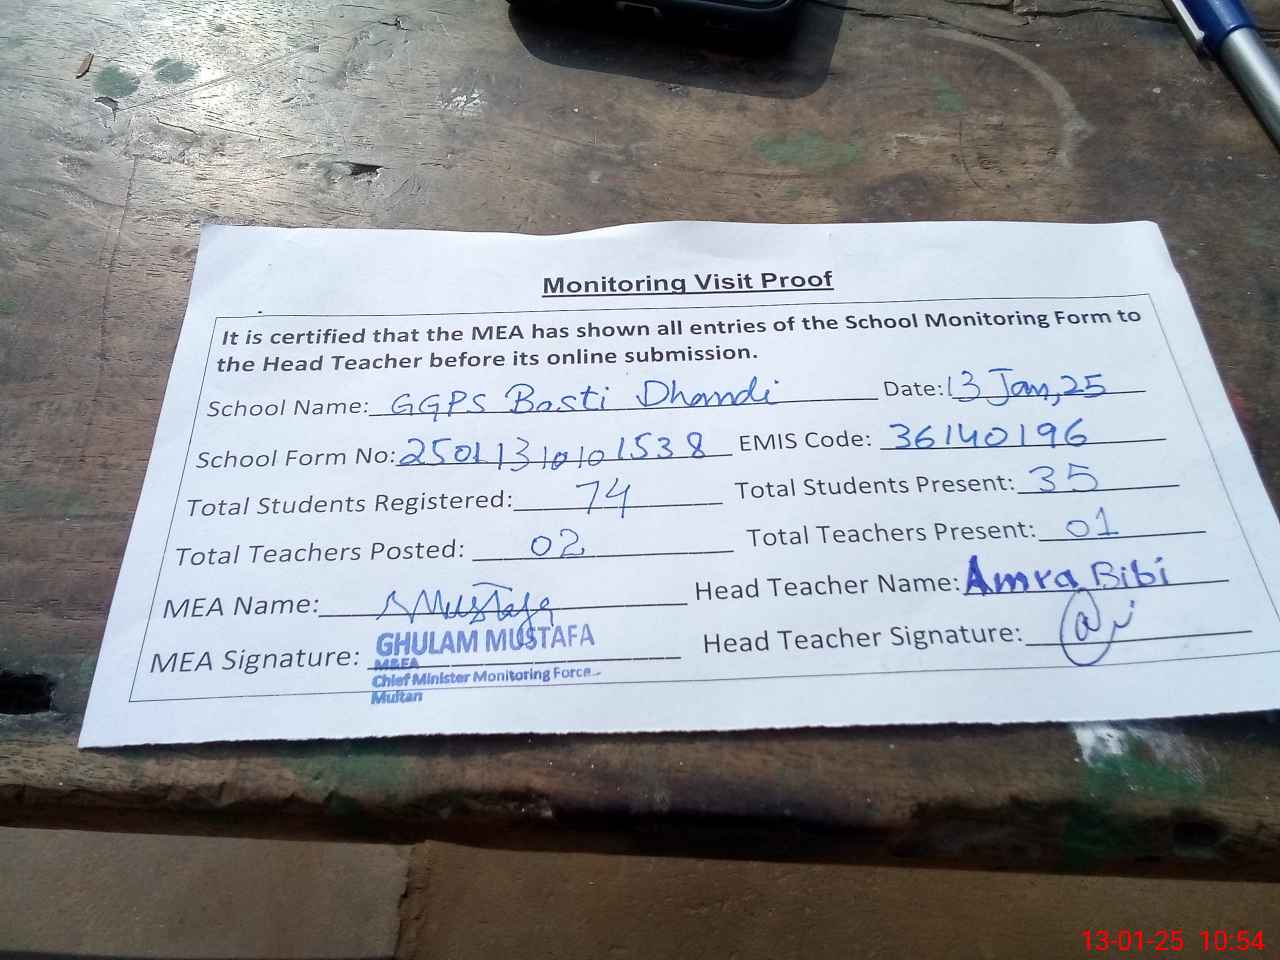 Monitoring Visit Proof
It is certified that the MEA has shown all entries of the School Monitoring Form to
the Head Teacher before its online submission.
School Name: GGPS Basti Dhandi Date: 13 Jan, 25
School Form No: 25011310101538 EMIS Code: 36140196
Total Students Registered: 74 Total Students Present: 35
Total Teachers Posted: 02 Total Teachers Present: 01
MEA Name: Mustafa Head Teacher Name: Amra Bibi
MEA Signature: GHULAM MUSTAFA Head Teacher Signature:
M&EA
Chief Minister Monitoring Force
Multan
13-01-25 10:54